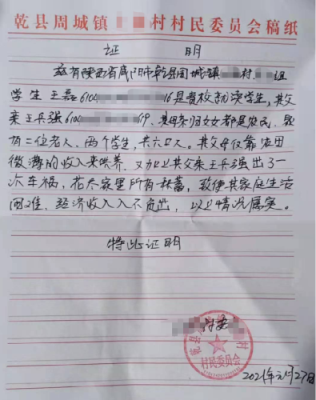 乾县周城镇 村村民委员会稿纸
证 明
兹有陕西省咸阳市乾县周城镇 村 组
学生王 610 16是 学生,其父
亲王兵强610 19,其母 妇女都是农民,
有二位老人,两个学生,共六口人。其父母仅靠
微薄的收入来 养,又加上其父亲王兵强出了一
次车祸,花尽家里所有 蓄,致使其家庭生活
困难,经济收入入不 出,以上情况属实。
特此证明
村民委员会
2021年 月27日